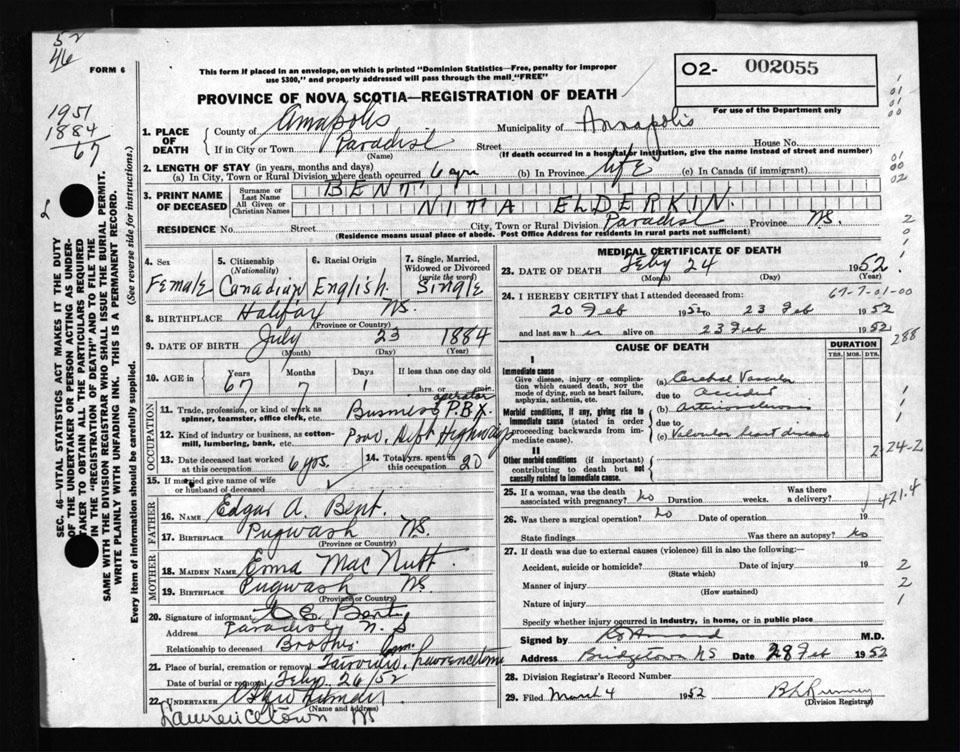 52
46
FORM 6
This form if placed in an envelope, on which is printed "Dominion Statistics—Free, penalty for improper
use $300," and properly addressed will pass through the mail "FREE"
O2- 002055
For use of the Department only
PROVINCE OF NOVA SCOTIA—REGISTRATION OF DEATH
1951
1884
67
1. PLACE OF DEATH
County of Annapolis Municipality of Annapolis
If in City or Town Paradise Street House No.
(Name) (If death occurred in a hospital or institution, give the name instead of street and number)
2. LENGTH OF STAY (in years, months and days)
(a) In City, Town or Rural Division where death occurred 6 yrs (b) In Province life (c) In Canada (if immigrant)
3. PRINT NAME OF DECEASED
Surname or Last Name BENT
All Given or Christian Names NITA ELDERKIN.
RESIDENCE No. Street City, Town or Rural Division Paradise Province N.S.
(Residence means usual place of abode. Post Office Address for residents in rural parts not sufficient)
4. Sex Female
5. Citizenship (Nationality) Canadian
6. Racial Origin English.
7. Single, Married, Widowed or Divorced (write the word) Single
8. BIRTHPLACE Halifax N.S.
(Province or Country)
9. DATE OF BIRTH July 23 1884
(Month) (Day) (Year)
10. AGE in Years Months Days If less than one day old
67 7 1 hrs. or min.
OCCUPATION
11. Trade, profession, or kind of work as spinner, teamster, office clerk, etc. Business P.B.X. operator
12. Kind of industry or business, as cotton-mill, lumbering, bank, etc. Prov. Dept Highways
13. Date deceased last worked at this occupation 6 yrs.
14. Total yrs. spent in this occupation 20
15. If married give name of wife or husband of deceased
FATHER
16. Name Edgar A. Bent.
17. Birthplace Pugwash N.S.
(Province or Country)
MOTHER
18. Maiden Name Emma Mac Nutt.
19. Birthplace Pugwash N.S.
(Province or Country)
20. Signature of informant Bent
Address Paradise N.S
Relationship to deceased Brother
21. Place of burial, cremation or removal Fairview Cem. Lawrencetown
Date of burial or removal Feby. 26/52
22. UNDERTAKER
(Name and address)
Lawrencetown NS
MEDICAL CERTIFICATE OF DEATH
23. DATE OF DEATH Feby 24 1952
(Month) (Day) (Year)
24. I HEREBY CERTIFY that I attended deceased from 67-7-01-00
20 Feb 1952 to 23 Feb 1952
and last saw her alive on 23 Feb 1952
288
CAUSE OF DEATH
DURATION
YRS. MOS. DYS.
I
Immediate cause
Give disease, injury or complication which caused death, NOT the mode of dying, such as heart failure, asphyxia, asthenia, etc.
(a) Cerebral Vascular
due to Accident
Morbid conditions, if any, giving rise to immediate cause (stated in order proceeding backwards from immediate cause).
(b) Arteriosclerosis
due to
(c) Valvular heart disease
II
Other morbid conditions (if important) contributing to death but not causally related to immediate cause.
2-24-2
25. If a woman, was the death associated with pregnancy? No Duration weeks. Was there a delivery?
421.4
26. Was there a surgical operation? No Date of operation 19
State findings Was there an autopsy? No
27. If death was due to external causes (violence) fill in also the following:—
Accident, suicide or homicide? Date of injury 19
(State which)
Manner of injury
(How sustained)
Nature of injury
Specify whether injury occurred in industry, in home, or in public place
Signed by M.D.
Address Bridgetown NS Date 28 Feb 1952
28. Division Registrar's Record Number
29. Filed March 4 1952
(Division Registrar)
SEC. 46—VITAL STATISTICS ACT MAKES IT THE DUTY
OF THE UNDERTAKER OR PERSON ACTING AS UNDER-
TAKER TO OBTAIN ALL THE PARTICULARS REQUIRED
IN THE "REGISTRATION OF DEATH" AND TO FILE THE
SAME WITH THE DIVISION REGISTRAR WHO SHALL ISSUE THE BURIAL PERMIT.
WRITE PLAINLY WITH UNFADING INK. THIS IS A PERMANENT RECORD.
Every item of information should be carefully supplied. (See reverse side for instructions.)